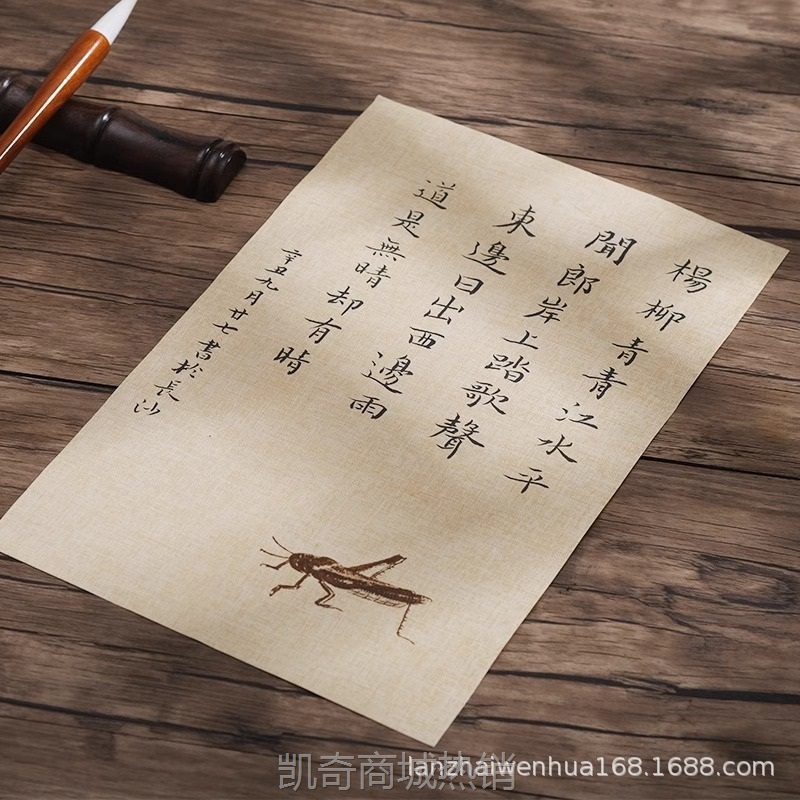 楊柳青青江水平
聞郎岸上踏歌聲
東邊日出西邊雨
道是無晴却有晴
辛丑九月廿七書於長沙
凯奇商城热销
lanzhaiwenhua168.1688.com